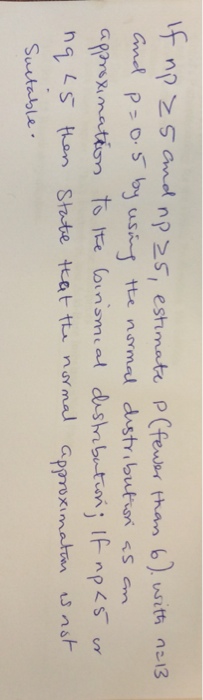 If np ≥ 5 and np ≥ 5, estimate P(fewer than 6) with n=13
and p = 0.5 by using the normal distribution as an
approximation to the binomial distribution; If np < 5 or
nq < 5 then State that the normal approximation is not
Suitable.